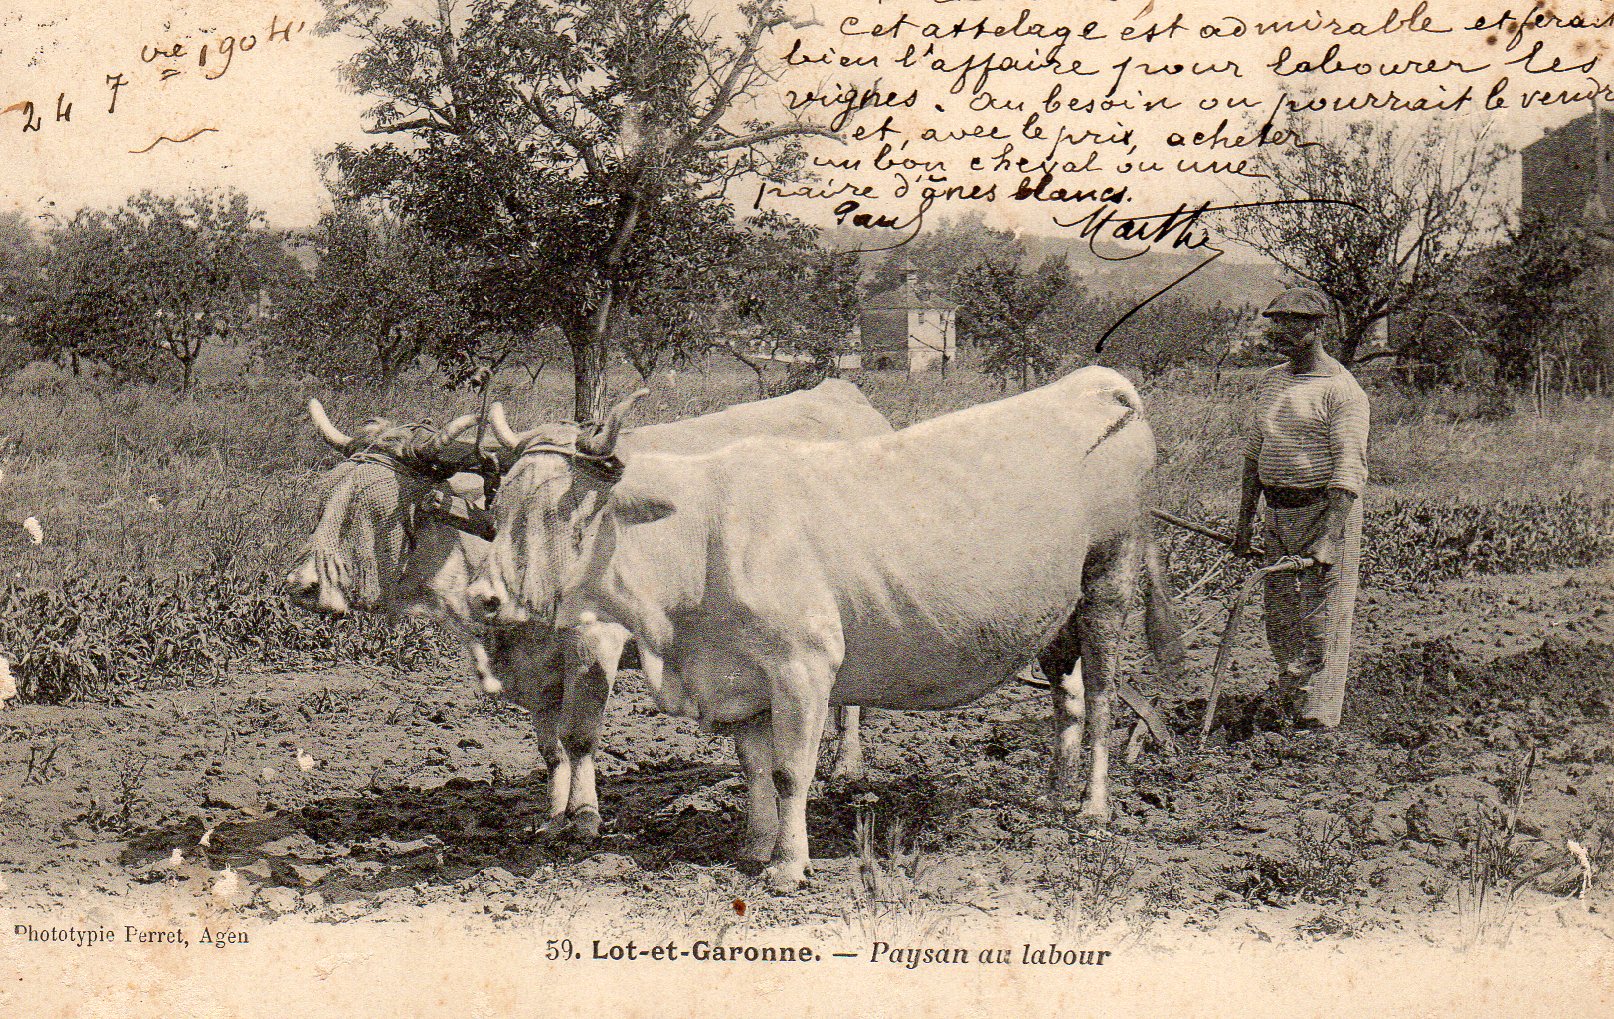 24 7 vre 1904
Cet attelage est admirable et ferait
bien l'affaire pour labourer les
vignes. Au besoin on pourrait le vendre
et, avec le prix, acheter
un bon cheval ou une
paire d'ânes blancs.
Paul Marthe
Phototypie Perret, Agen
59. Lot-et-Garonne. — Paysan au labour